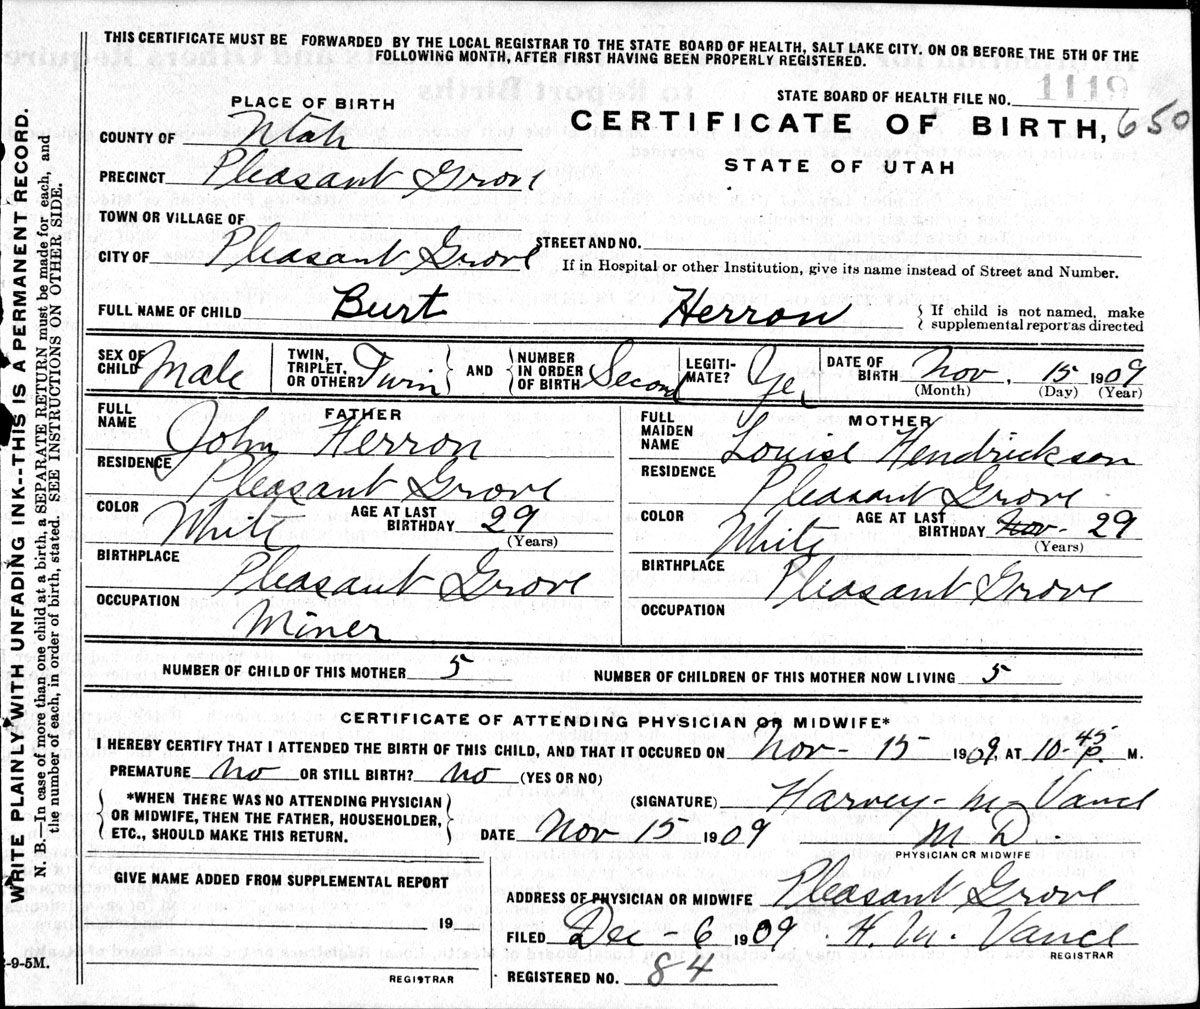 THIS CERTIFICATE MUST BE FORWARDED BY THE LOCAL REGISTRAR TO THE STATE BOARD OF HEALTH, SALT LAKE CITY, ON OR BEFORE THE 5TH OF THE
FOLLOWING MONTH, AFTER FIRST HAVING BEEN PROPERLY REGISTERED.
STATE BOARD OF HEALTH FILE NO. 1119
PLACE OF BIRTH
CERTIFICATE OF BIRTH, 650
STATE OF UTAH
COUNTY OF Utah
PRECINCT Pleasant Grove
TOWN OR VILLAGE OF
CITY OF Pleasant Grove STREET AND NO.
If in Hospital or other Institution, give its name instead of Street and Number.
FULL NAME OF CHILD Burt Herron { If child is not named, make
supplemental report as directed
SEX OF CHILD Male TWIN, TRIPLET, OR OTHER? Twin } AND { NUMBER IN ORDER OF BIRTH Second LEGITI-MATE? Yes DATE OF BIRTH Nov, 15 1909
(Month) (Day) (Year)
FATHER
FULL NAME John Herron
RESIDENCE Pleasant Grove
COLOR White AGE AT LAST BIRTHDAY 29
(Years)
BIRTHPLACE Pleasant Grove
OCCUPATION Miner
MOTHER
FULL MAIDEN NAME Louise Hendrickson
RESIDENCE Pleasant Grove
COLOR White AGE AT LAST BIRTHDAY Nov- 29
(Years)
BIRTHPLACE Pleasant Grove
OCCUPATION
NUMBER OF CHILD OF THIS MOTHER 5 NUMBER OF CHILDREN OF THIS MOTHER NOW LIVING 5
CERTIFICATE OF ATTENDING PHYSICIAN OR MIDWIFE*
I HEREBY CERTIFY THAT I ATTENDED THE BIRTH OF THIS CHILD, AND THAT IT OCCURED ON Nov - 15 1909, AT 10-45 P. M.
PREMATURE No OR STILL BIRTH? No (YES OR NO)
{ *WHEN THERE WAS NO ATTENDING PHYSICIAN
OR MIDWIFE, THEN THE FATHER, HOUSEHOLDER,
ETC., SHOULD MAKE THIS RETURN. }
(SIGNATURE) Harvey - M - Vance
DATE Nov 15 1909 M D.
PHYSICIAN OR MIDWIFE
GIVE NAME ADDED FROM SUPPLEMENTAL REPORT
19
REGISTRAR
ADDRESS OF PHYSICIAN OR MIDWIFE Pleasant Grove
FILED Dec - 6 1909. H. M. Vance
REGISTRAR
REGISTERED NO. 84
WRITE PLAINLY WITH UNFADING INK--THIS IS A PERMANENT RECORD.
N. B.—In case of more than one child at a birth, a SEPARATE RETURN must be made for each, and
the number of each, in order of birth, stated. SEE INSTRUCTIONS ON OTHER SIDE.
-9-5M.